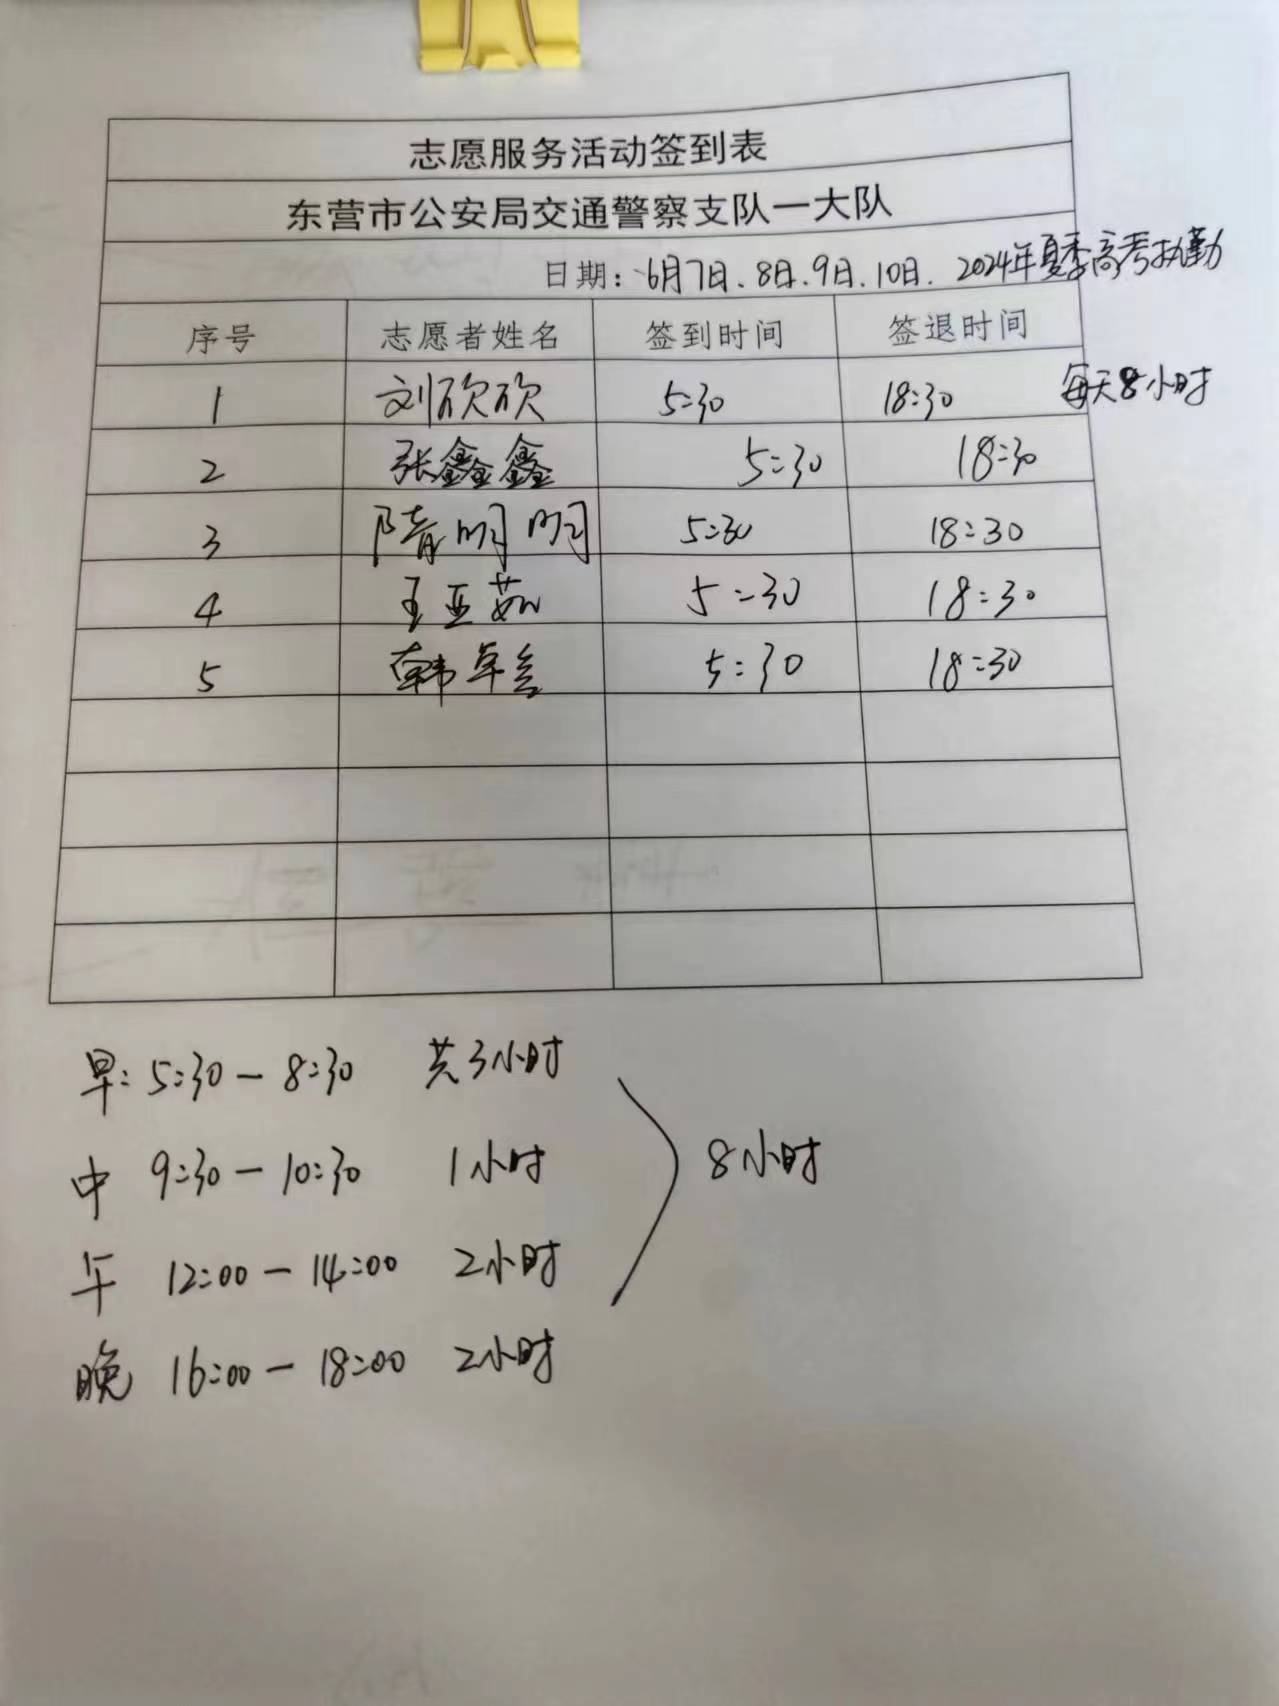 志愿服务活动签到表
东营市公安局交通警察支队一大队
日期：6月7日、8日、9日、10日、2024年夏季高考执勤
序号 志愿者姓名 签到时间 签退时间
1 刘砍砍 5:30 18:30 每天8小时
2 张鑫鑫 5:30 18:30
3 隋明明 5:30 18:30
4 王亚茹 5:30 18:30
5 韩卓 5:30 18:30
早：5:30－8:30 共3小时
中 9:30－10:30 1小时
8小时
午 12:00－14:00 2小时
晚 16:00－18:00 2小时